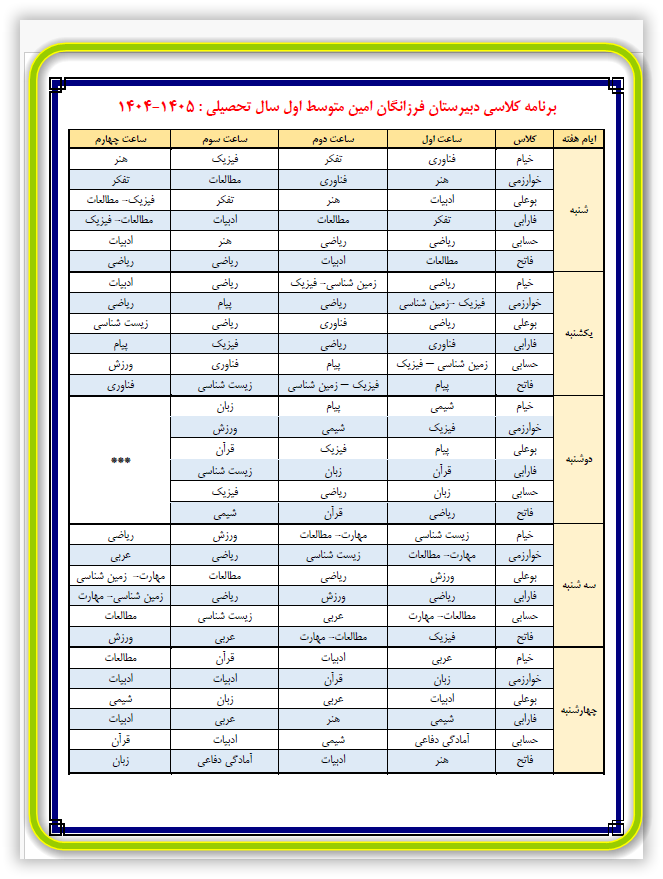 برنامه کلاسی دبیرستان فرزانگان امین متوسط اول سال تحصیلی : ۱۴۰۵-۱۴۰۴
ایام هفته کلاس ساعت اول ساعت دوم ساعت سوم ساعت چهارم
شنبه
خیام فناوری تفکر فیزیک هنر
خوارزمی هنر فناوری مطالعات تفکر
بوعلی ادبیات هنر تفکر فیزیک- مطالعات
فارابی تفکر مطالعات ادبیات مطالعات- فیزیک
حسابی ریاضی ریاضی هنر ادبیات
فاتح مطالعات ادبیات ریاضی ریاضی
یکشنبه
خیام ریاضی زمین شناسی- فیزیک ریاضی ادبیات
خوارزمی فیزیک -زمین شناسی ریاضی پیام ریاضی
بوعلی ریاضی فناوری ریاضی زیست شناسی
فارابی فناوری ریاضی فیزیک پیام
حسابی زمین شناسی – فیزیک پیام فناوری ورزش
فاتح پیام فیزیک – زمین شناسی زیست شناسی فناوری
دوشنبه
خیام شیمی پیام زبان
خوارزمی فیزیک شیمی ورزش
بوعلی پیام فیزیک قرآن
***
فارابی قرآن زبان زیست شناسی
حسابی زبان ریاضی فیزیک
فاتح ریاضی قرآن شیمی
سه شنبه
خیام زیست شناسی مهارت- مطالعات ورزش ریاضی
خوارزمی مهارت- مطالعات زیست شناسی ریاضی عربی
بوعلی ورزش ریاضی مطالعات مهارت- زمین شناسی
فارابی ریاضی ورزش ریاضی زمین شناسی- مهارت
حسابی مطالعات- مهارت عربی زیست شناسی مطالعات
فاتح فیزیک مطالعات- مهارت عربی ورزش
چهارشنبه
خیام عربی ادبیات قرآن مطالعات
خوارزمی زبان قرآن ادبیات ادبیات
بوعلی ادبیات عربی زبان شیمی
فارابی شیمی هنر عربی ادبیات
حسابی آمادگی دفاعی شیمی ادبیات قرآن
فاتح هنر ادبیات آمادگی دفاعی زبان